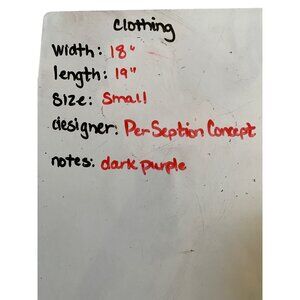 Clothing
width: 18"
length: 19"
size: Small
designer: Per Seption Concept
notes: dark purple